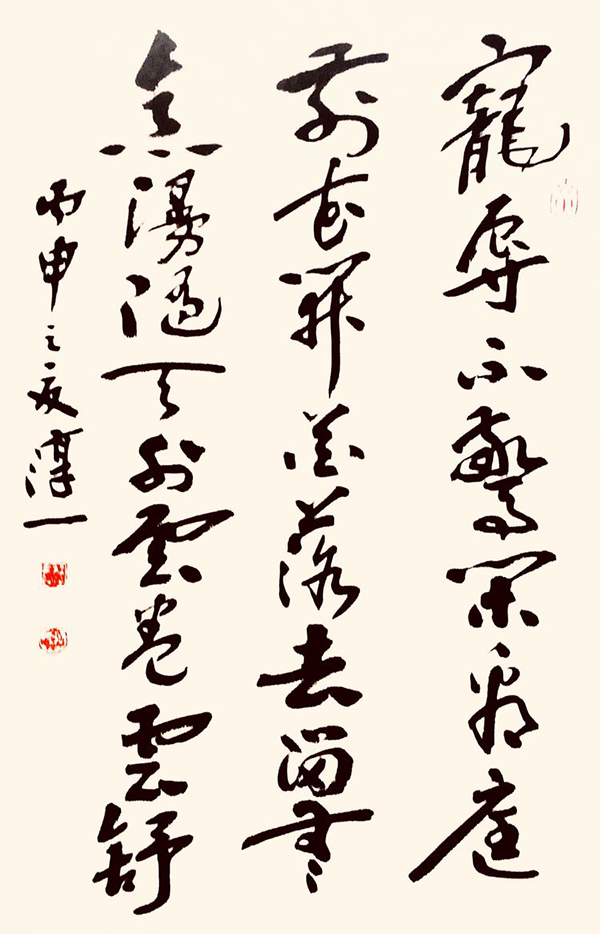 寵辱不驚閑看庭
前花開花落去留無
意漫隨天外雲卷雲舒
丙申之夏淳一